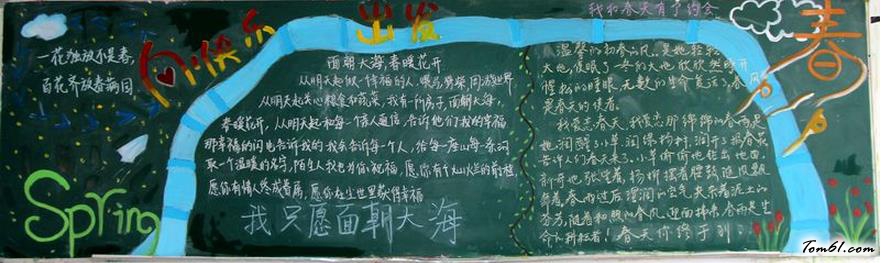 一花独放不是春，
百花齐放春满园。
向快乐出发
Spring
面朝大海，春暖花开
从明天起做一个幸福的人，喂马劈柴，周游世界
从明天起关心粮食和蔬菜，我有一所房子，面朝大海，
春暖花开，从明天起和每一个亲人通信，告诉他们我的幸福
那幸福的闪电告诉我的我会告诉每个人，给每一座山每一条河
取一个温暖的名字，陌生人我也为你祝福，愿你有个灿烂的前程
愿你有情人终成眷属，愿你在尘世里获得幸福
我只愿面朝大海
我和春天有了约会
温馨的初春的风，
大地，催眠了一冬的大地欣欣然睁开
惺忪的睡眼，无数的生命复活了，春风
是春天的使者。
我爱春天，我更恋那绵绵的春雨，是
她润醒了小草，润绿杨树，润开了
告诉人们春天来了，小草偷偷地钻出地面，
新奇地张望着，杨柳摆着腰肢迎风飘
舞着，春雨过后湿润的空气，夹杂着泥土的
芬芳，随着和煦的春风，迎面扑来，春雨是生
命的耕耘者！春天你终于到
春
Tom61.com